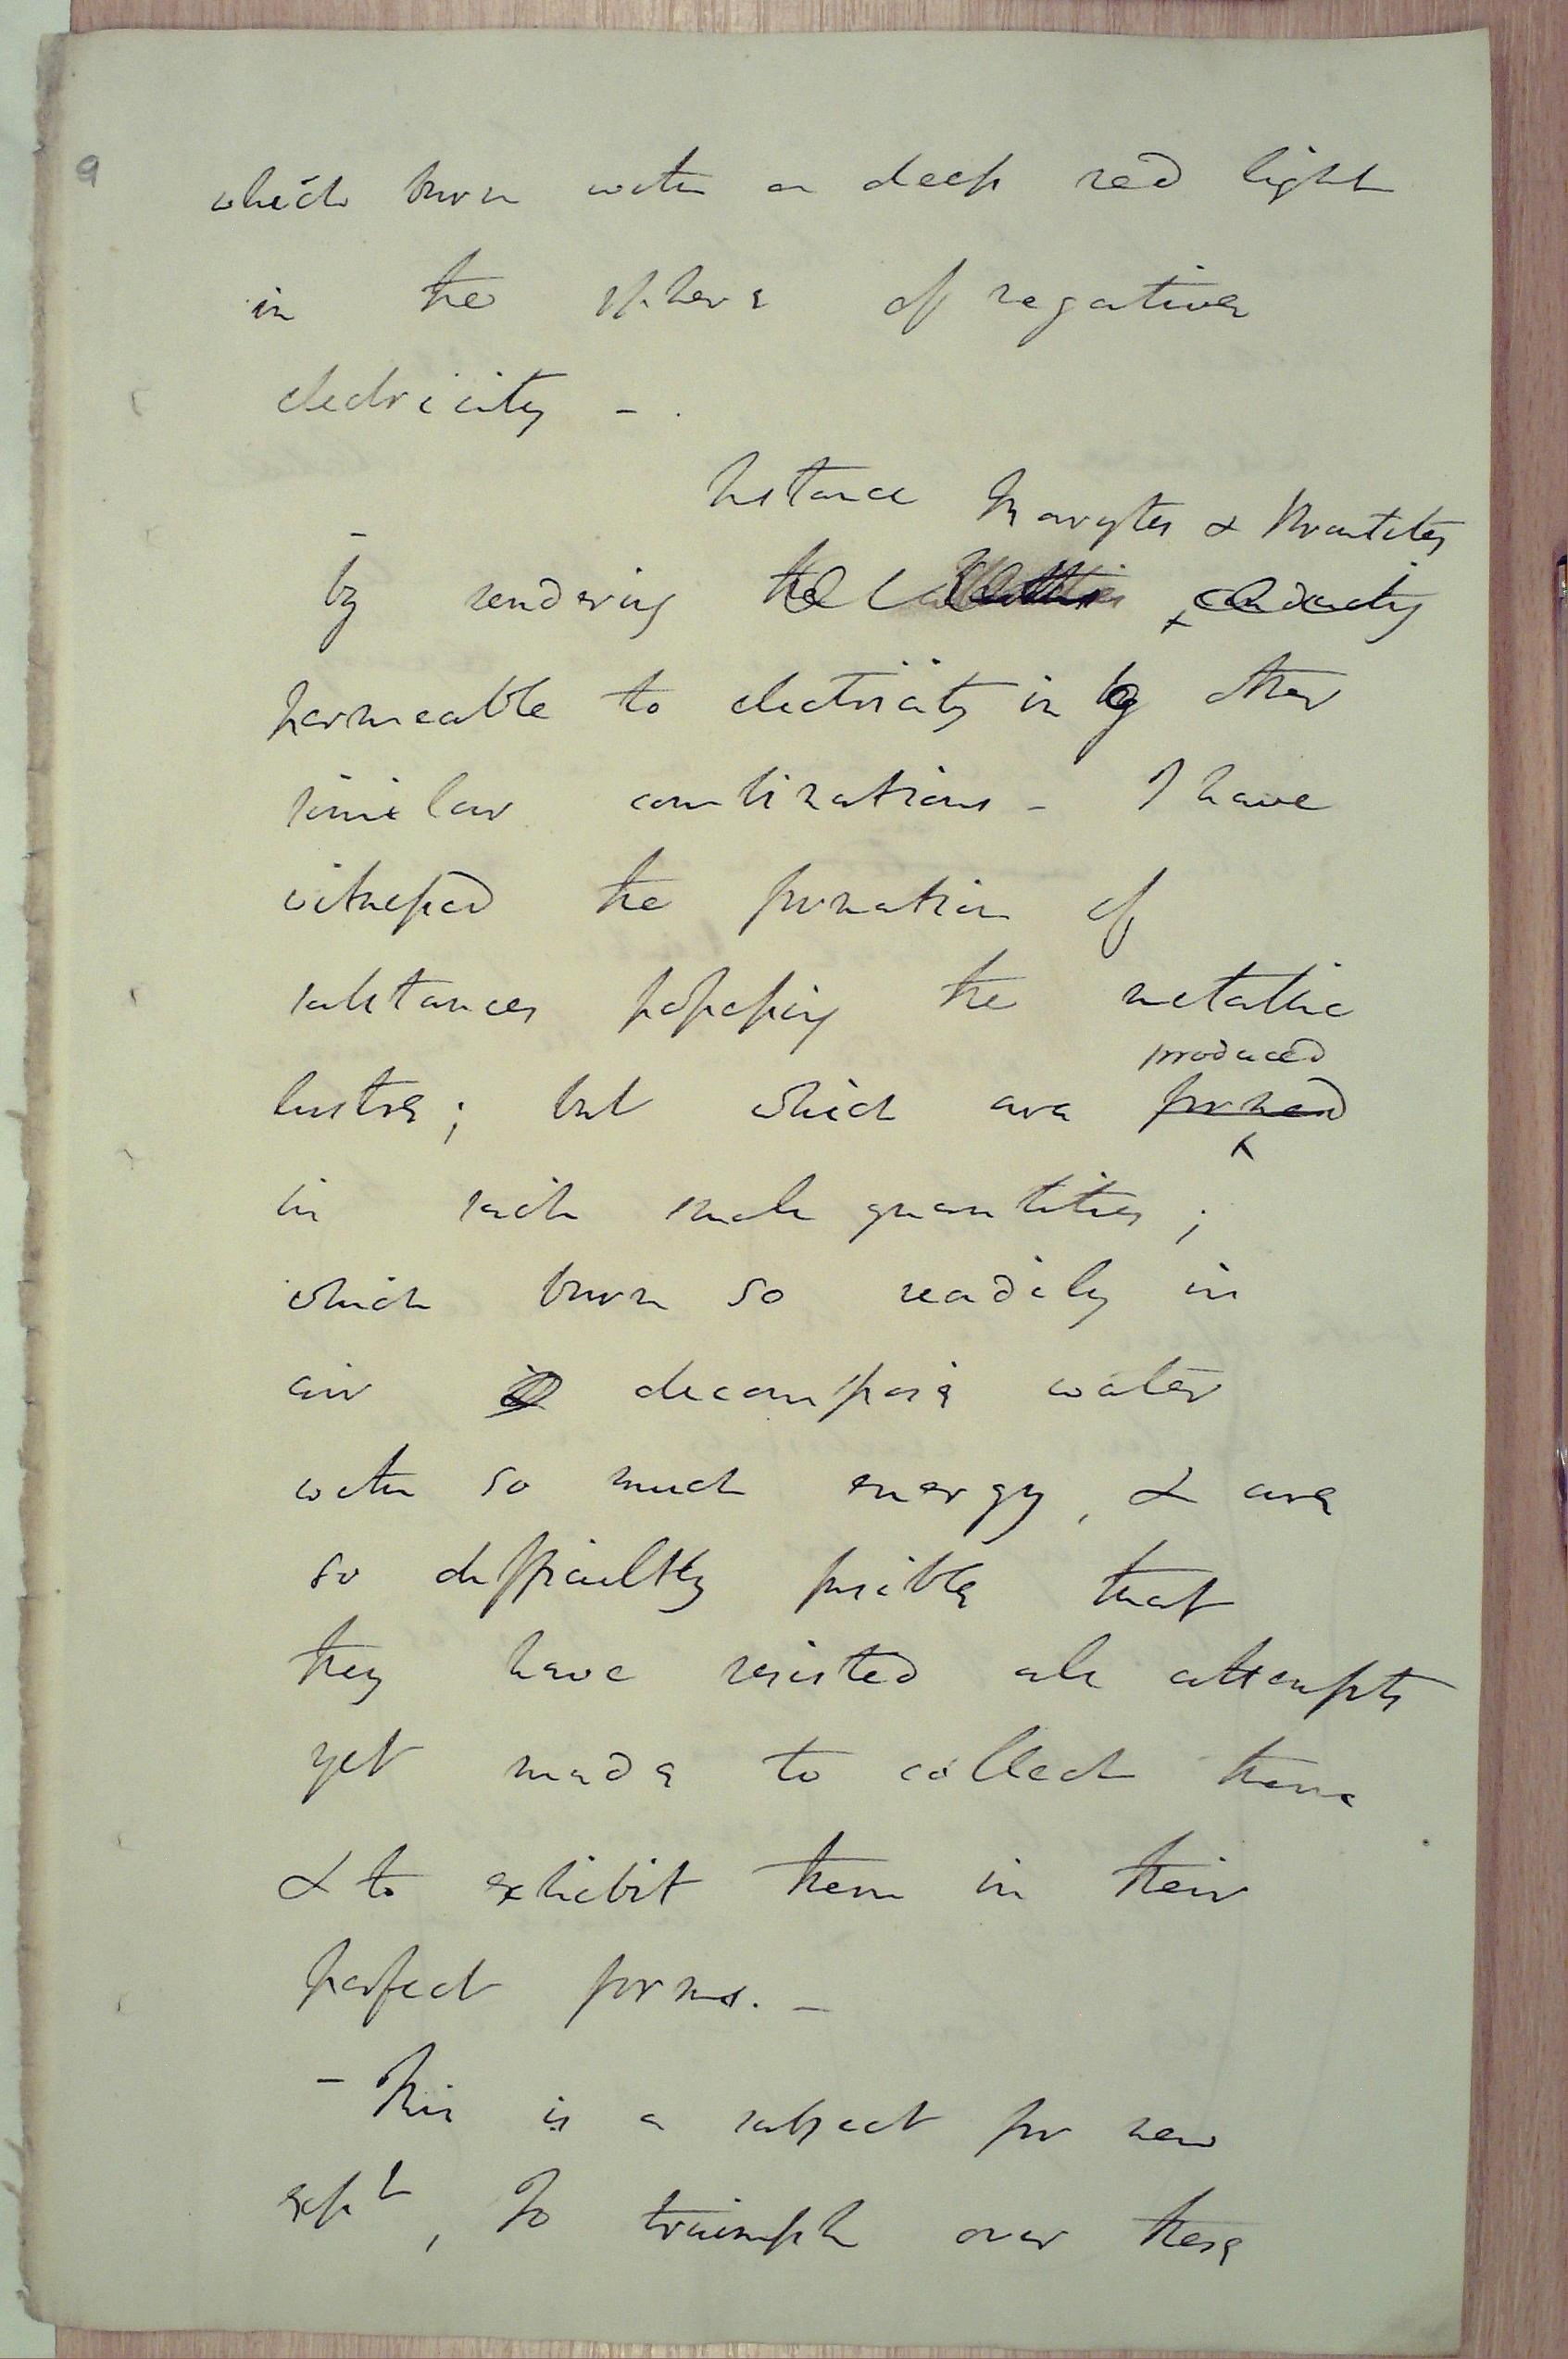 9
which burn with a deep red light
in the sphere of negative
electricity -.
Instance Barytes & Strontites
- by rendering the conducting
permeable to electricity in by other
similar combinations - I have
witnessed the formation of
substances possessing the metallic
produced
lustre; but which are formed
in such small quantities;
which burn so readily in
air decompose water
with so much energy, & are
so difficultly fusible that
they have resisted all attempts
yet made to collect them
& to exhibit them in their
perfect forms. -
- This is a subject for new
expt, To triumph over these